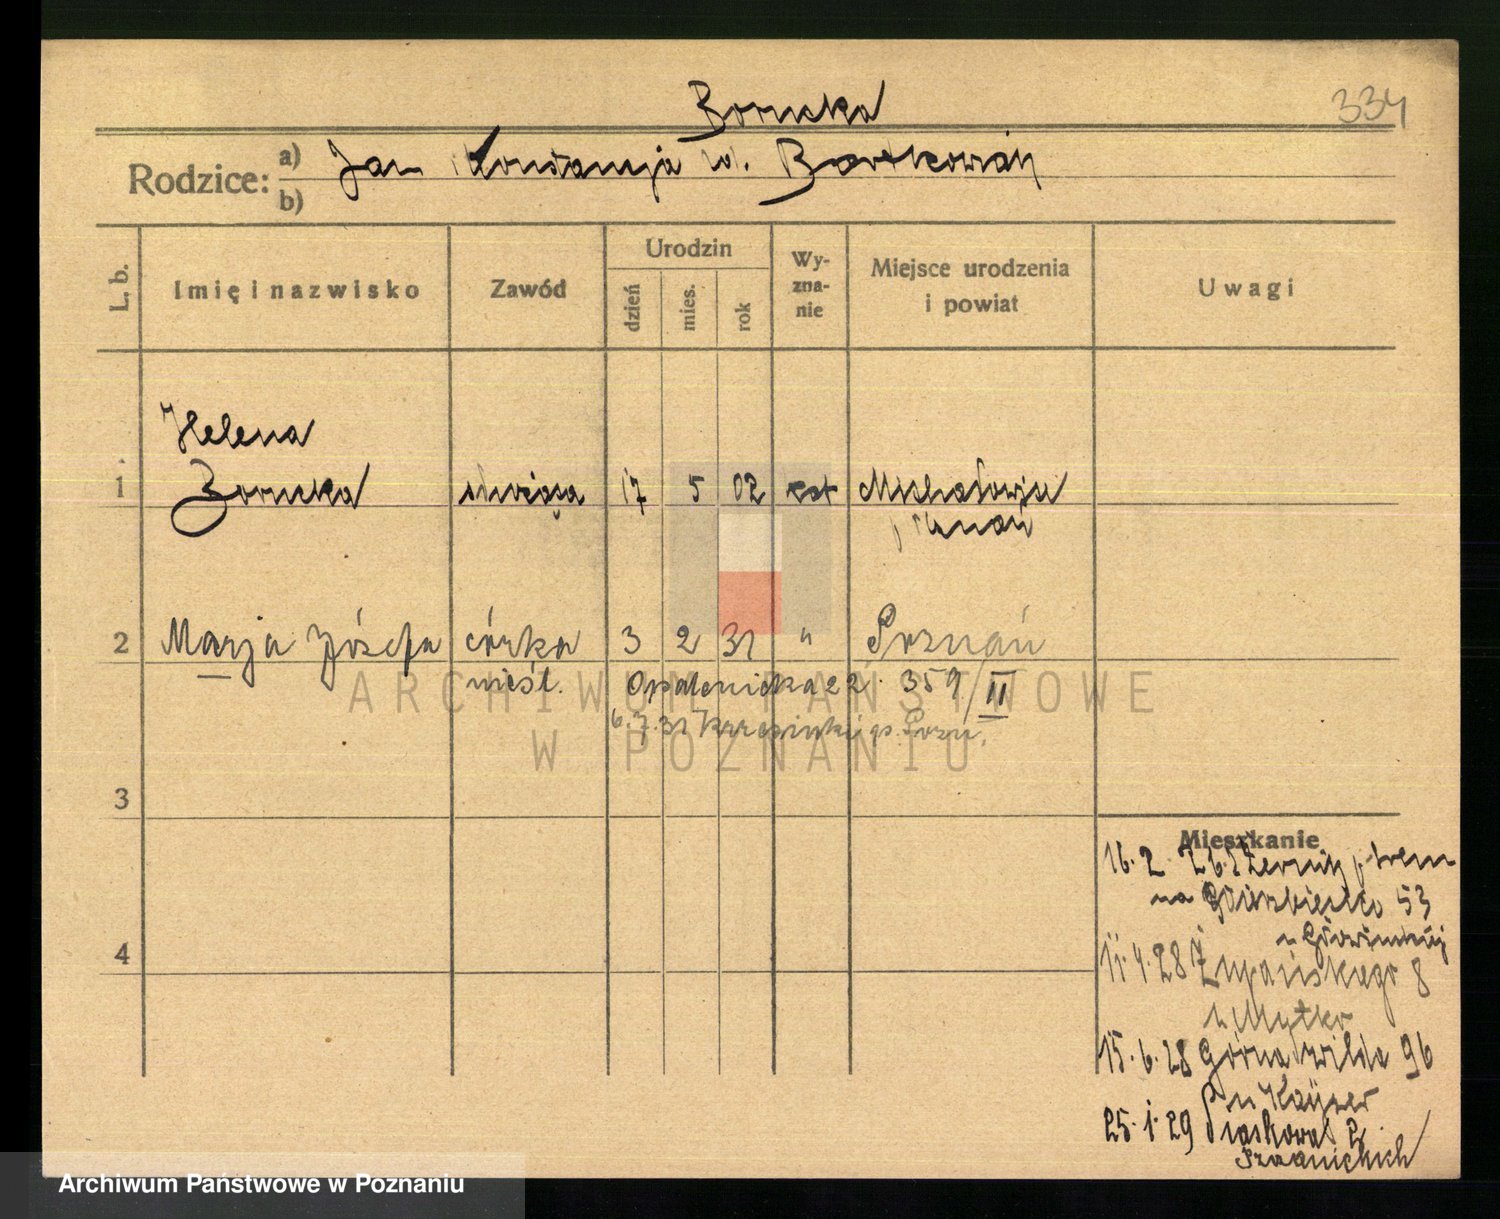 334
Borucka
Rodzice: a) b)
Jan Konstancja Bartkowiak
L. b.
Imię i nazwisko
Zawód
Urodzin
dzień
mies.
rok
Wy-
zna-
nie
Miejsce urodzenia
i powiat
Uwagi
Helena
1 Borucka służąca 17 5 02 kat
2 Marja Józefa córka 3 2 31 " Poznań
nieśl. Opalenicka 22 359/II
6.7.31
3
Mieszkanie
16.2 26
na 53
4
11.4.28 Żupańskiego 8
15.6.28 Górna Wilda 96
u Kayser
25.1.29 Piaskowa 2
ARCHIWUM PAŃSTWOWE
W POZNANIU
Archiwum Państwowe w Poznaniu